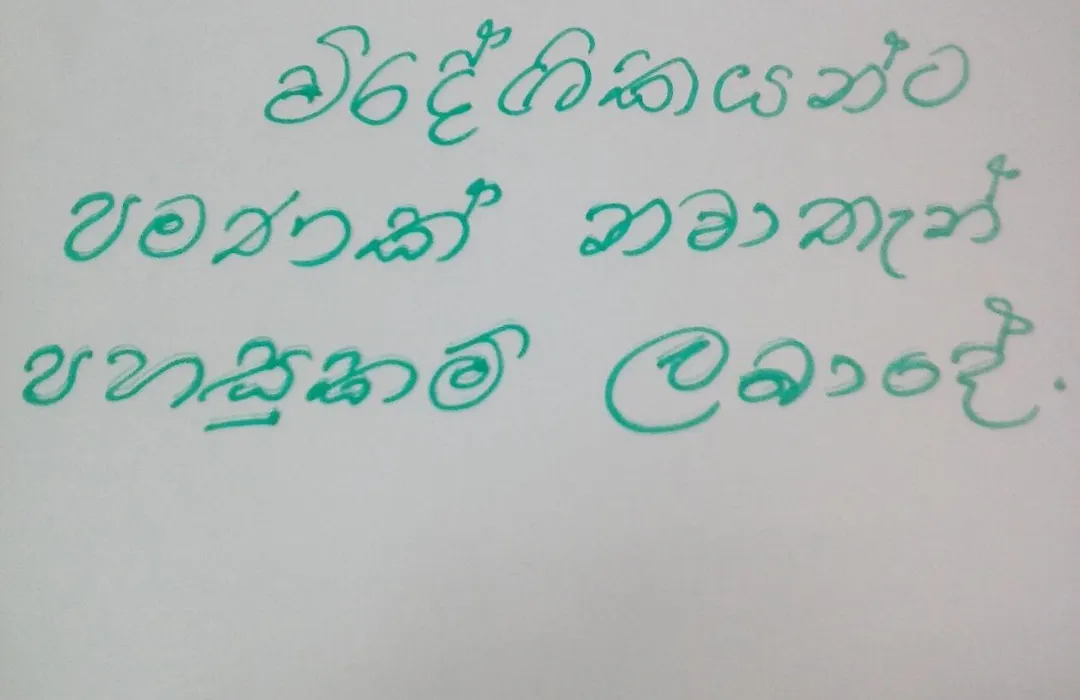 විදේශිකයන්ට
පමණක් නවාතැන්
පහසුකම් ලබාදේ.